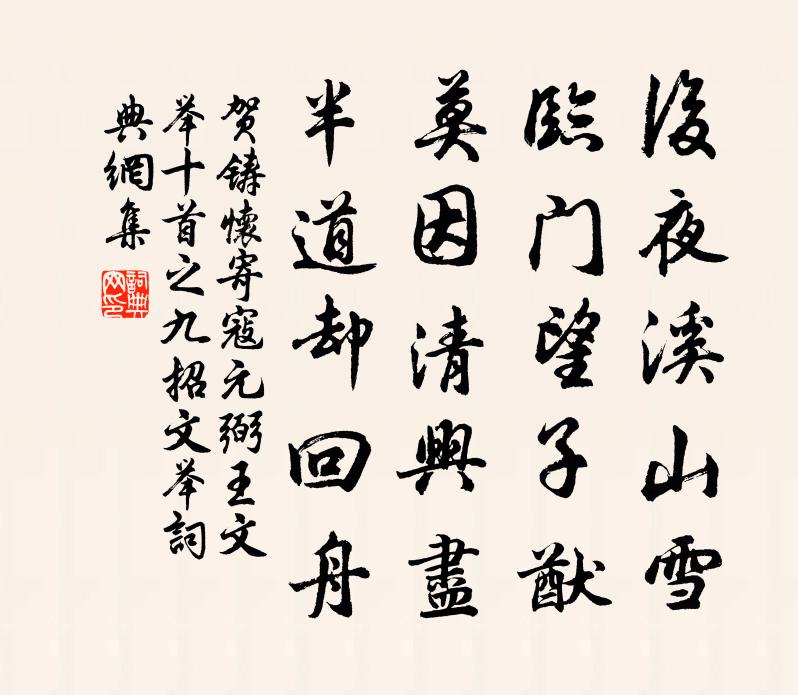 後夜溪山雪
臨门望子猷
莫因清興盡
半道却回舟
贺鑄懷寄寇元弼王文
举十首之九招文举詞
典網集
詞典
网印